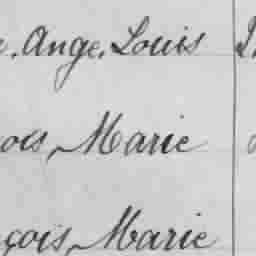 . Ange, Louis
ois, Marie
çois, Marie